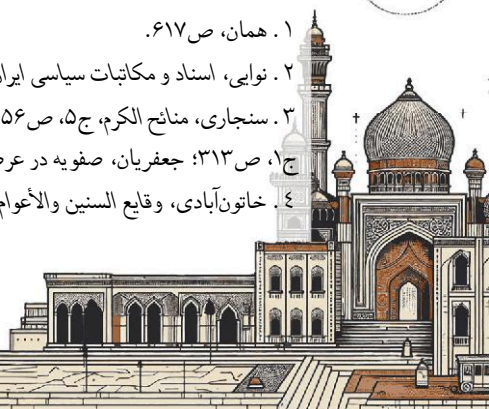 ١. همان، ص۶۱۷.
٢. نوایی، اسناد و مکاتبات سیاسی ایران
٣. سنجاری، منائح الکرم، ج۵، ص۵۶
ج۱، ص۳۱۳؛ جعفریان، صفویه در
٤. خاتون‌آبادی، وقایع السنین والأعوام